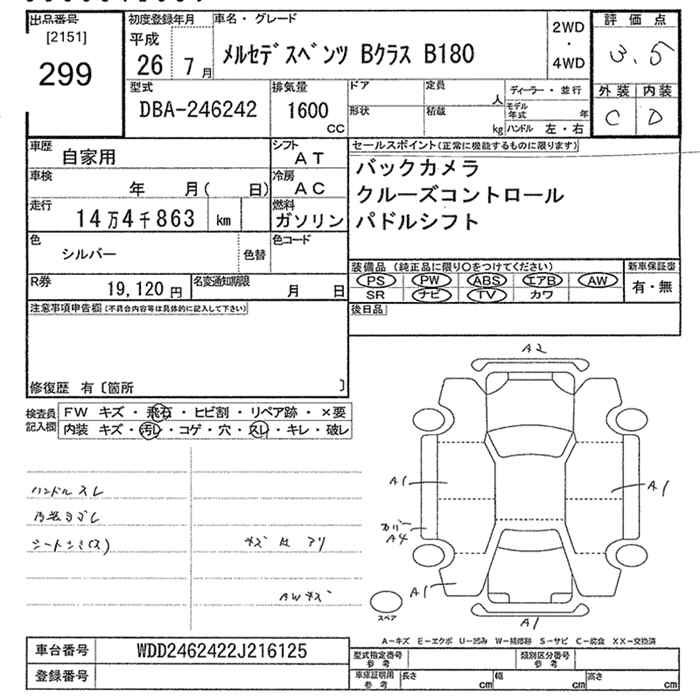 出品番号
[2151]
299
初度登録年月
平成
26 7月
車名・グレード
メルセデスベンツ Bクラス B180
2WD
・
4WD
評価点
3.5
外装 内装
C D
型式
DBA-246242
排気量
1600
cc
ドア
形状
定員
人
積載
kg
ディーラー・並行
モデル年式 年
ハンドル 左・右
車歴
自家用
シフト
AT
車検
年 月( 日)
冷房
AC
走行
14万4千863 km
燃料
ガソリン
色
シルバー
色替
色コード
R券
19,120 円
名変通知期限
月 日
セールスポイント(正常に機能するものに限ります)
バックカメラ
クルーズコントロール
パドルシフト
装備品(純正品に限り○をつけてください)
PS PW ABS エアB AW
SR ナビ TV カワ
新車保証書
有・無
後日品
注意事項申告欄(不具合内容等は具体的に記入して下さい)
修復歴 有〔箇所 〕
検査員記入欄
FW キズ・飛石・ヒビ割・リペア跡・×要
内装 キズ・汚レ・コゲ・穴・スレ・キレ・破レ
ハンドルスレ
内装ヨゴレ
キズ 凹 アリ
AWキズ
A2
A1
A1
カバー
A4
A1
A1
スペア
A-キズ E-エクボ U-凹み W-補修跡 S-サビ C-腐食 XX-交換済
車台番号
WDD2462422J216125
登録番号
型式指定番号
参考
類別区分番号
参考
車庫証明用
参考
長さ cm
幅 cm
高さ cm